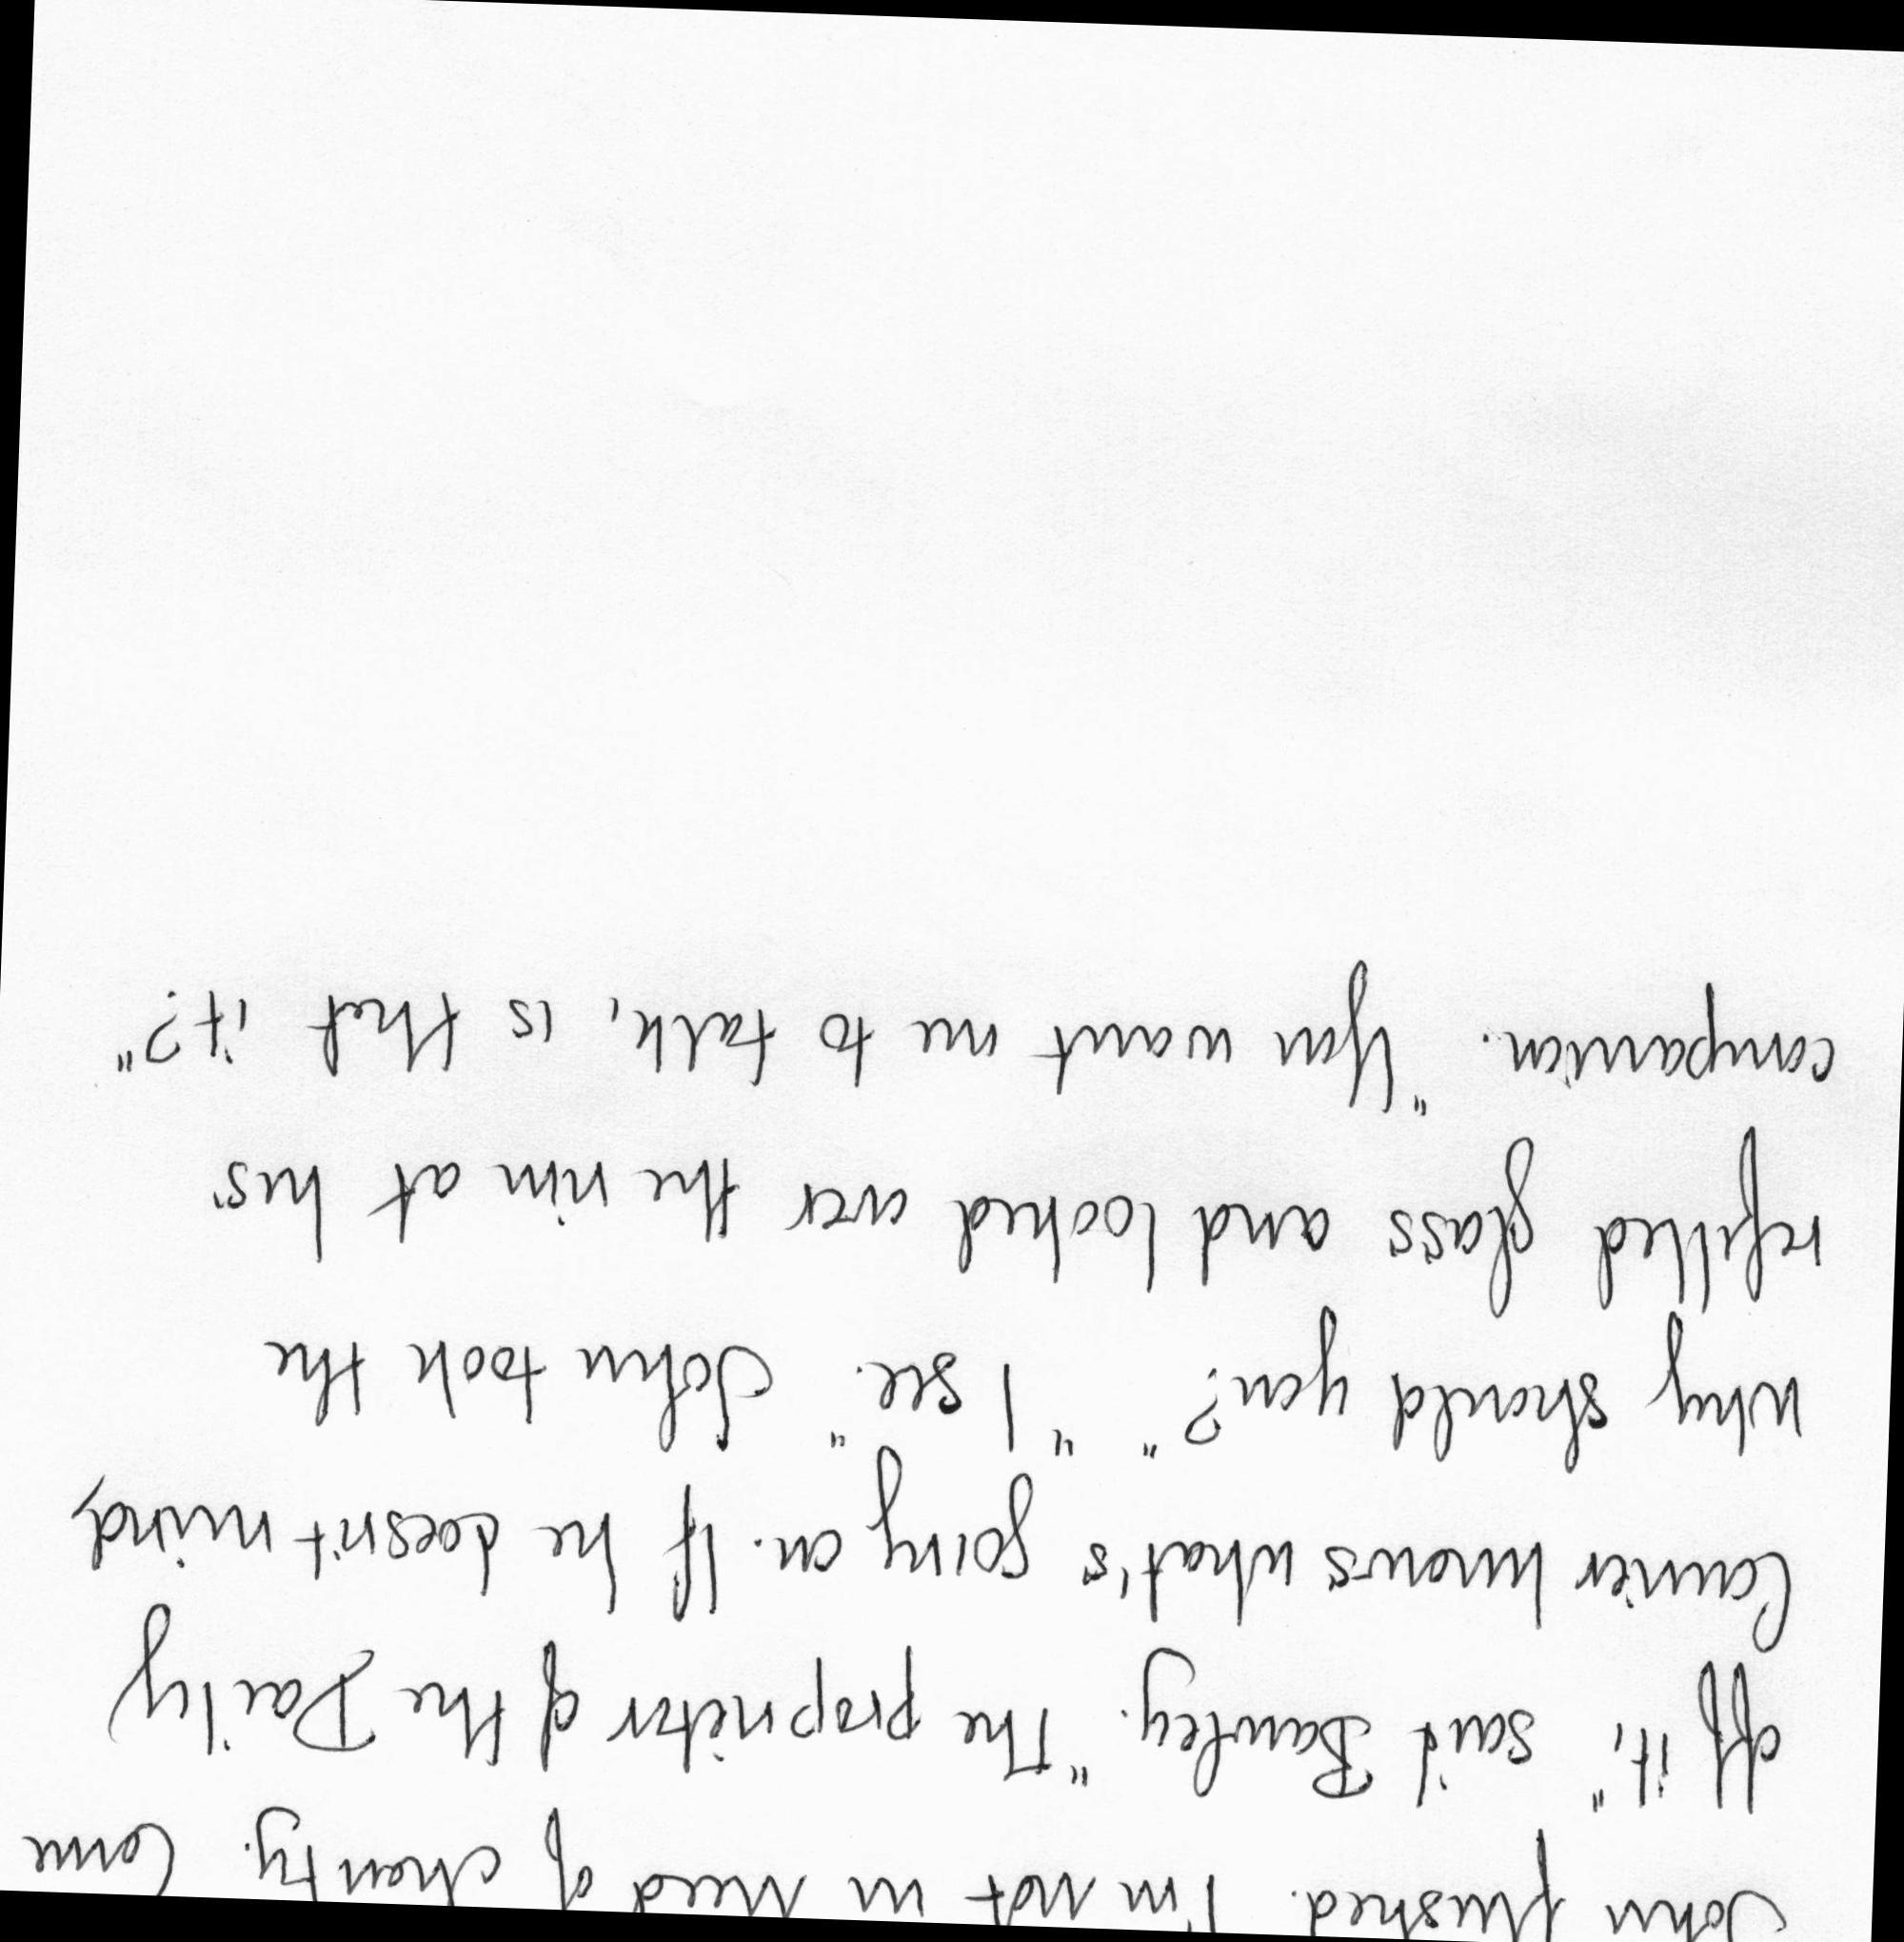 John flushed. I'm not in need of charity. Come
off it," said Bawley. "The proprietor of the Daily
Courier knows what's going on. If he doesn't mind,
why should you?" "I see." John took the
refilled glass and looked over the rim at his
companion. "You want me to talk, is that it?"